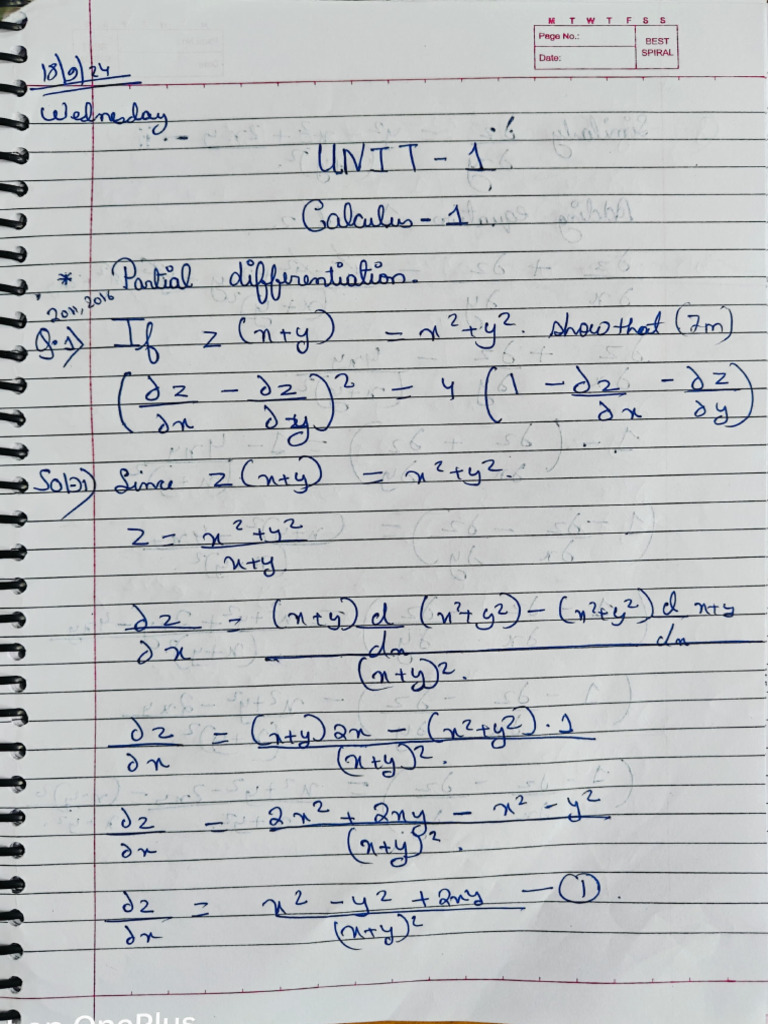 M T W T F S S
Page No.:
Date:
BEST
SPIRAL
18/9/24
Wednesday
UNIT - 1
Calculus - 1
* Partial differentiation.
2011, 2016
Q.1) If z (x+y) = x²+y². show that (7m)
(∂z/∂x - ∂z/∂y)² = 4 (1 - ∂z/∂x - ∂z/∂y)
Sol:-1) Since z (x+y) = x²+y².
z = x²+y² / x+y
∂z/∂x = (x+y) d/dx (x²+y²) - (x²+y²) d/dx x+y / (x+y)².
∂z/∂x = (x+y) 2x - (x²+y²) . 1 / (x+y)².
∂z/∂x = 2x² + 2xy - x² - y² / (x+y)².
∂z/∂x = x² - y² + 2xy / (x+y)² — ①.
OnePlus